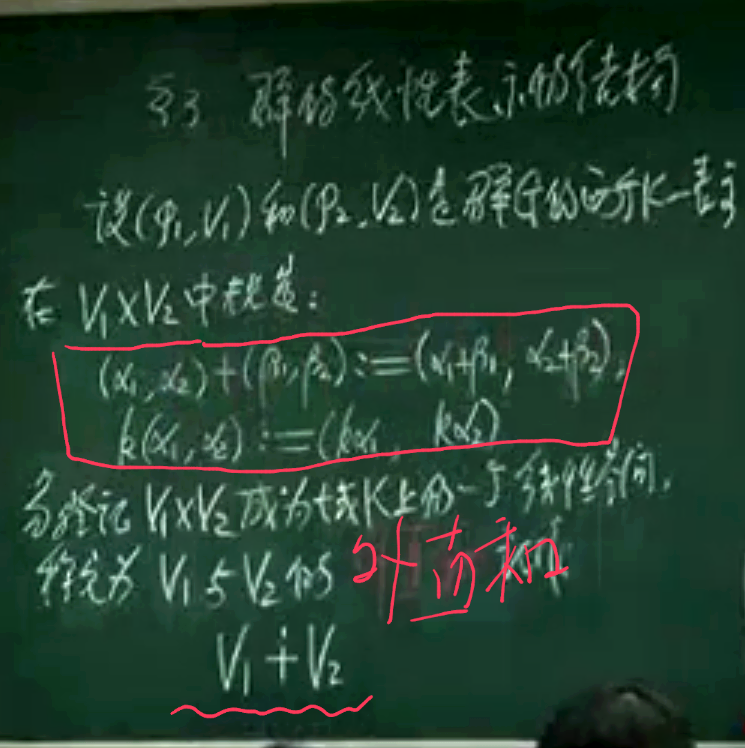 §3 群的线性表示的结构
设(φ₁,V₁)和(φ₂,V₂)是群G的两个K-表示
在 V₁×V₂中规定:
(α₁,α₂)+(β₁,β₂):=(α₁+β₁, α₂+β₂),
k(α₁,α₂):=(kα₁, kα₂)
易验证 V₁×V₂成为域K上的一个线性空间,
称它为 V₁与V₂的 外直和
V₁∔V₂